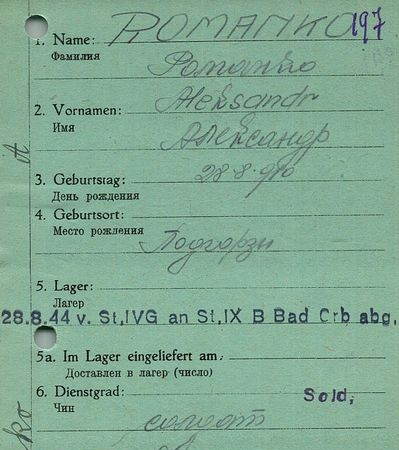 197
1. Name: ROMANKO
Фамилия Романко
2. Vornamen: Aleksandr
Имя Александр
3. Geburtstag: 28·8·
День рождения
4. Geburtsort:
Место рождения
5. Lager:
Лагер
28.8.44 v. St,IVG an St,IX B Bad Orb abg,
5a. Im Lager eingeliefert am:
Доставлен в лагер (число)
6. Dienstgrad: Sold,
Чин
солдат